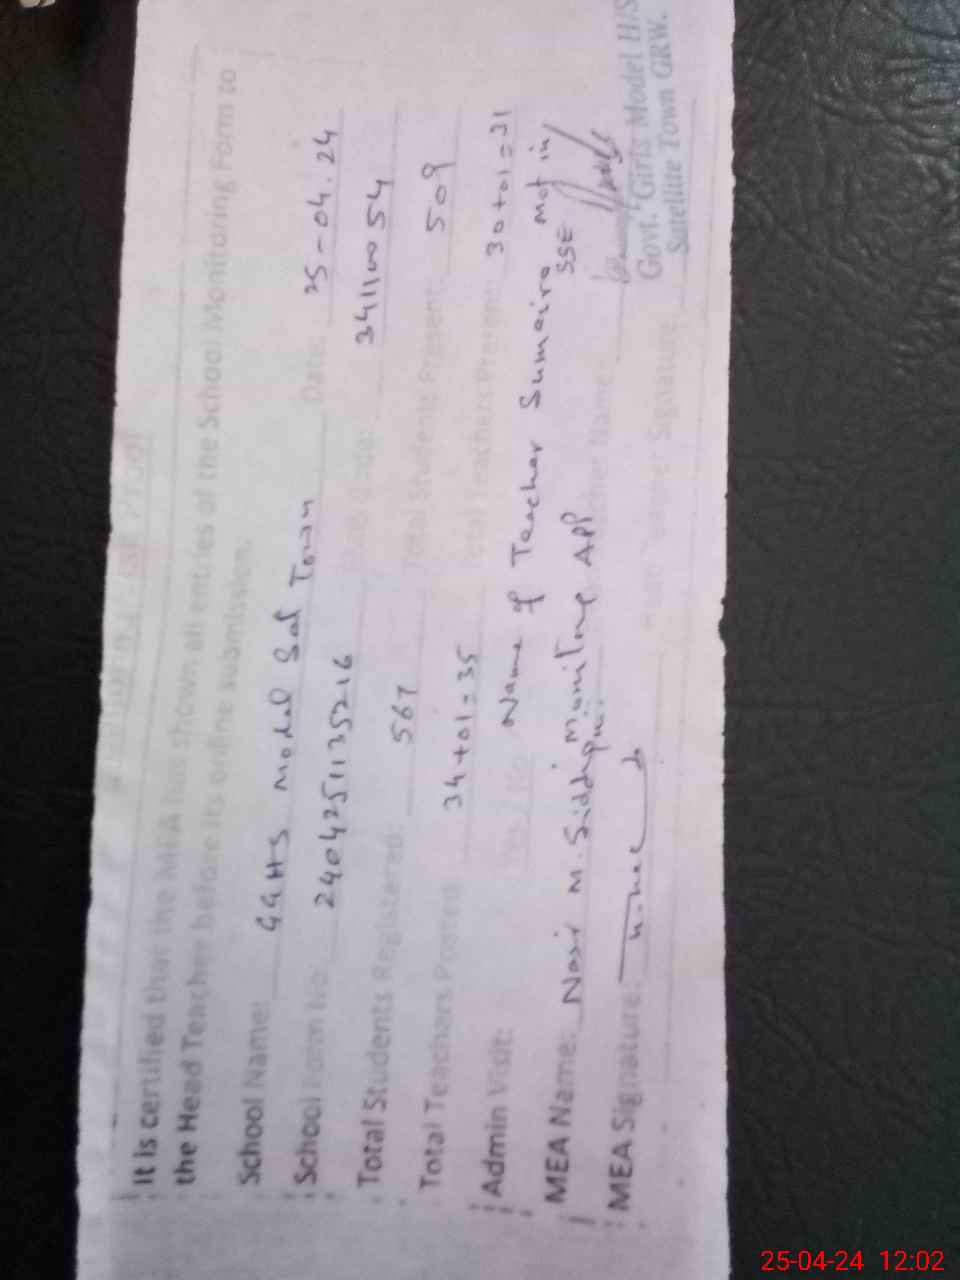 It is certified that the MEA has shown all entries of the School Monitoring Form to
the Head Teacher before its online submission.
School Name: GGHS Model Sat Town Date: 25-04.24
School Form No: 2404251135216 34110054
Total Students Registered: 567 Total Students Present: 509
Total Teachers Posted: 34+01=35 Total Teachers Present: 30+01=31
Admin Visit: Yes / No Name of Teacher Sumaira Not in
MEA Name: Nasir M. Siddiqui Monitoring APP SSE
MEA Signature: Head Teacher Signature
Govt. Girls Model H/S
Satellite Town GRW.
25-04-24 12:02